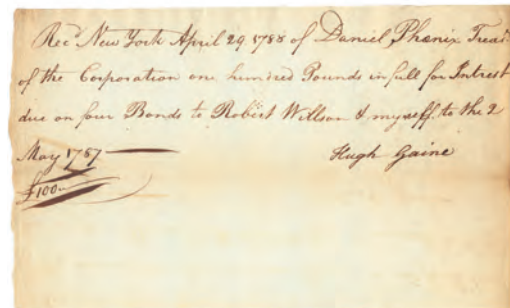 Recd New York April 29. 1788 of Daniel Phœnix Treasr.
of the Corporation one hundred Pounds in full for Intrest
due on four Bonds to Robert Willson & myself to the 2
May 1787
Hugh Gaine
£100